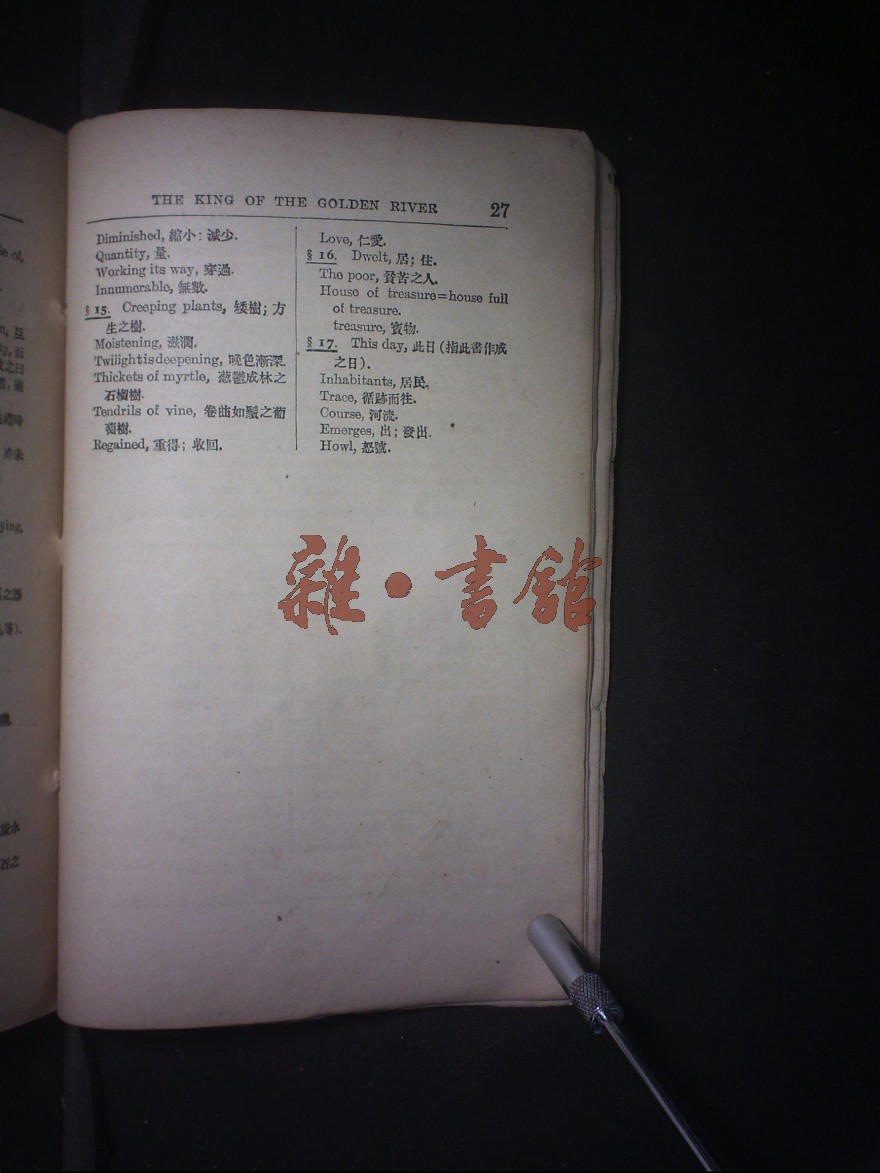 THE KING OF THE GOLDEN RIVER 27
Diminished, 縮小; 減少.
Quantity, 量.
Working its way, 穿過.
Innumerable, 無數.
§ 15. Creeping plants, 矮樹; 方
生之樹.
Moistening, 滋潤.
Twilight is deepening, 晚色漸深.
Thickets of myrtle, 葱鬱成林之
石榴樹.
Tendrils of vine, 卷曲如鬚之葡
萄樹.
Regained, 重得; 收回.
Love, 仁愛.
§ 16. Dwelt, 居; 住.
The poor, 貧苦之人.
House of treasure=house full
of treasure.
treasure, 寳物.
§ 17. This day, 此日 (指此書作成
之日).
Inhabitants, 居民.
Trace, 循跡而往.
Course, 河流.
Emerges, 出; 發出.
Howl, 怒號.
雜·書館